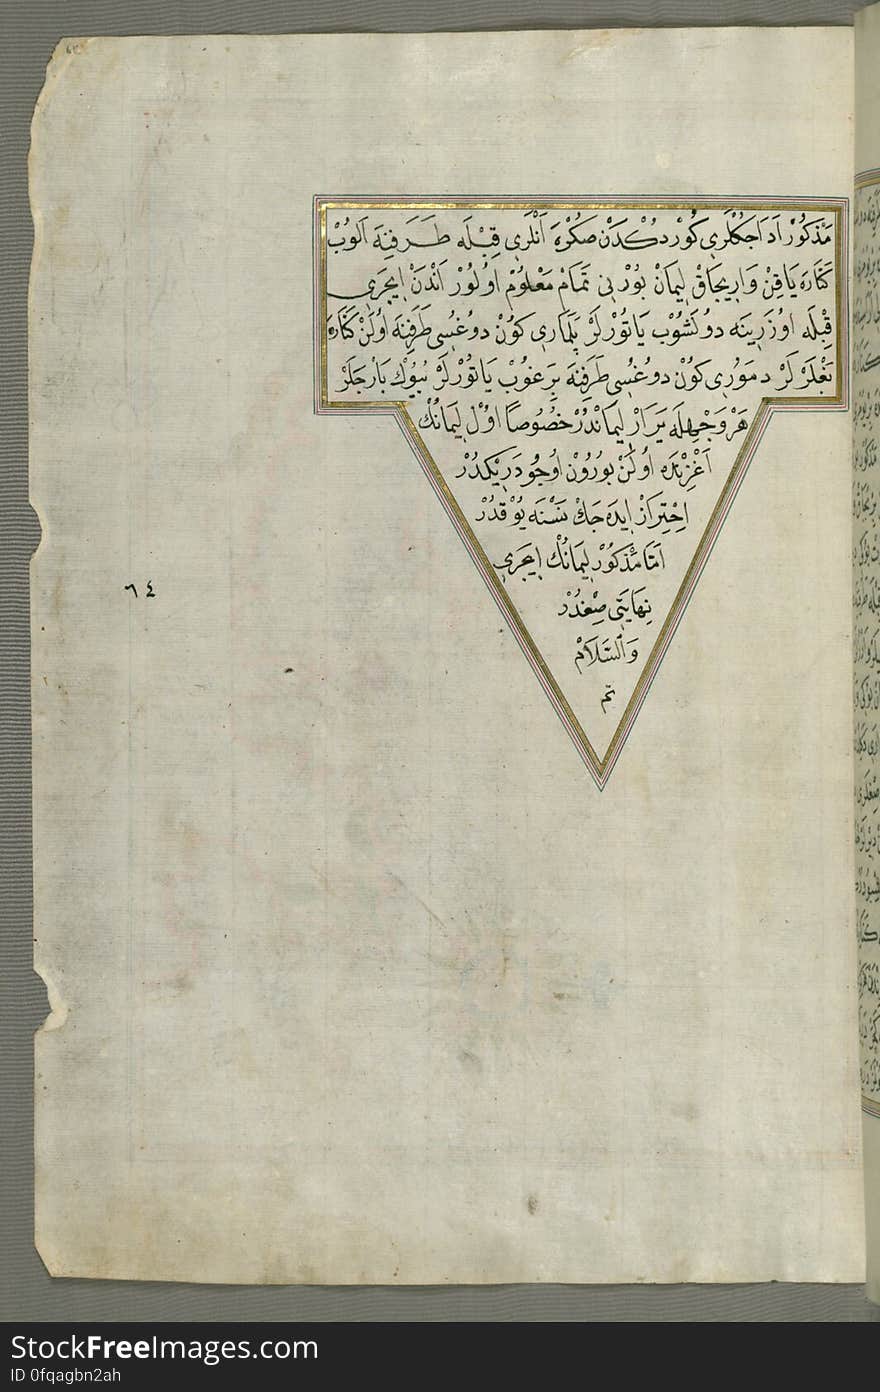 مَذْكُورْ اَدَاجِكْلَرِي كُورْدُكْدَنْ صَكْرَه اَنْلَرِي قِبْلَه طَرَفِنَه اَلُوبْ
كَنَارَه يَاقِنْ وَارِيجَاقْ لِيمَانْ بُورْنِي تَمَامْ مَعْلُومْ اوُلُورْ اَنْدَنْ اِيچَرِي
قِبْلَه اوُزَرِينَه دوُنَشُوبْ يَاتُورْلَرْ پَلَمَارِي كوُنْ دوُغُسِي طَرَفِنَه اوُلَنْ كَنَارَه
بَغْلَرْلَرْ دَمُورِي كوُنْ دوُغُسِي طَرَفِنَه بِرَغوُبْ يَاتُورْلَرْ بُيوُكْ بَارْجَلَرْ
هَرْ وَجْهِلَه يَرَارْ لِيمَانْدُرْ خُصُوصًا اوُلْ لِيمَانُكْ
اَغْزِنْدَه اوُلَنْ بوُرُونْ اوُجُو دَرِيكْدُرْ
اِحْتِرَازْ اِيدَه جَكْ نَسْنَه يوُقْدُرْ
اَمَّا مَذْكُورْ لِيمَانُكْ اِيچَرِي
نِهَايَتِي صِغْدُرْ
وَالسَّلَامْ
تم
٦٤
StockFreeImages.com
ID 0fqagbn2ah